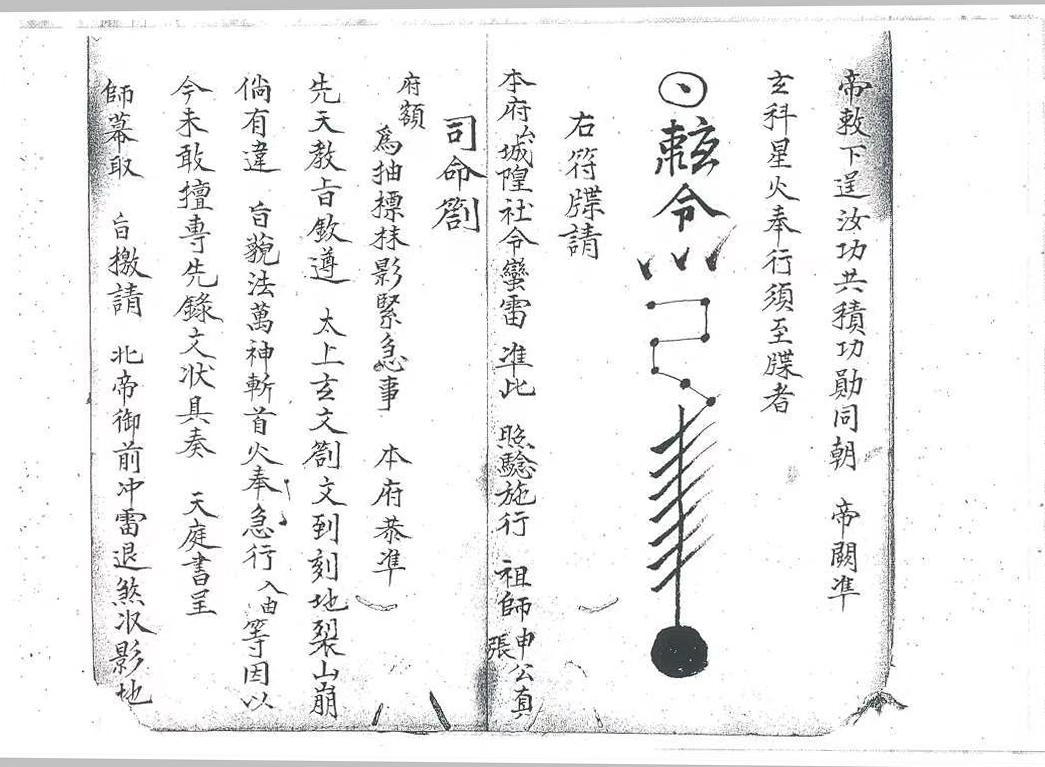 帝敕下逞汝功共積功勛同朝 帝闕準
玄科星火奉行須至牒者
敕令
右符牒請
本府城隍社令蠻雷 準此 照驗施行 祖師申公真
張
司命劄
府額
為抽摽抹影緊急事 本府恭準
先天教旨欽遵 太上玄文劄文到刻地裂山崩
倘有違 旨藐法萬神斬首火奉急行入由等因以
今未敢擅專先錄文狀具奏 天庭書呈
師幕取 旨檄請 北帝御前冲雷退煞收影地